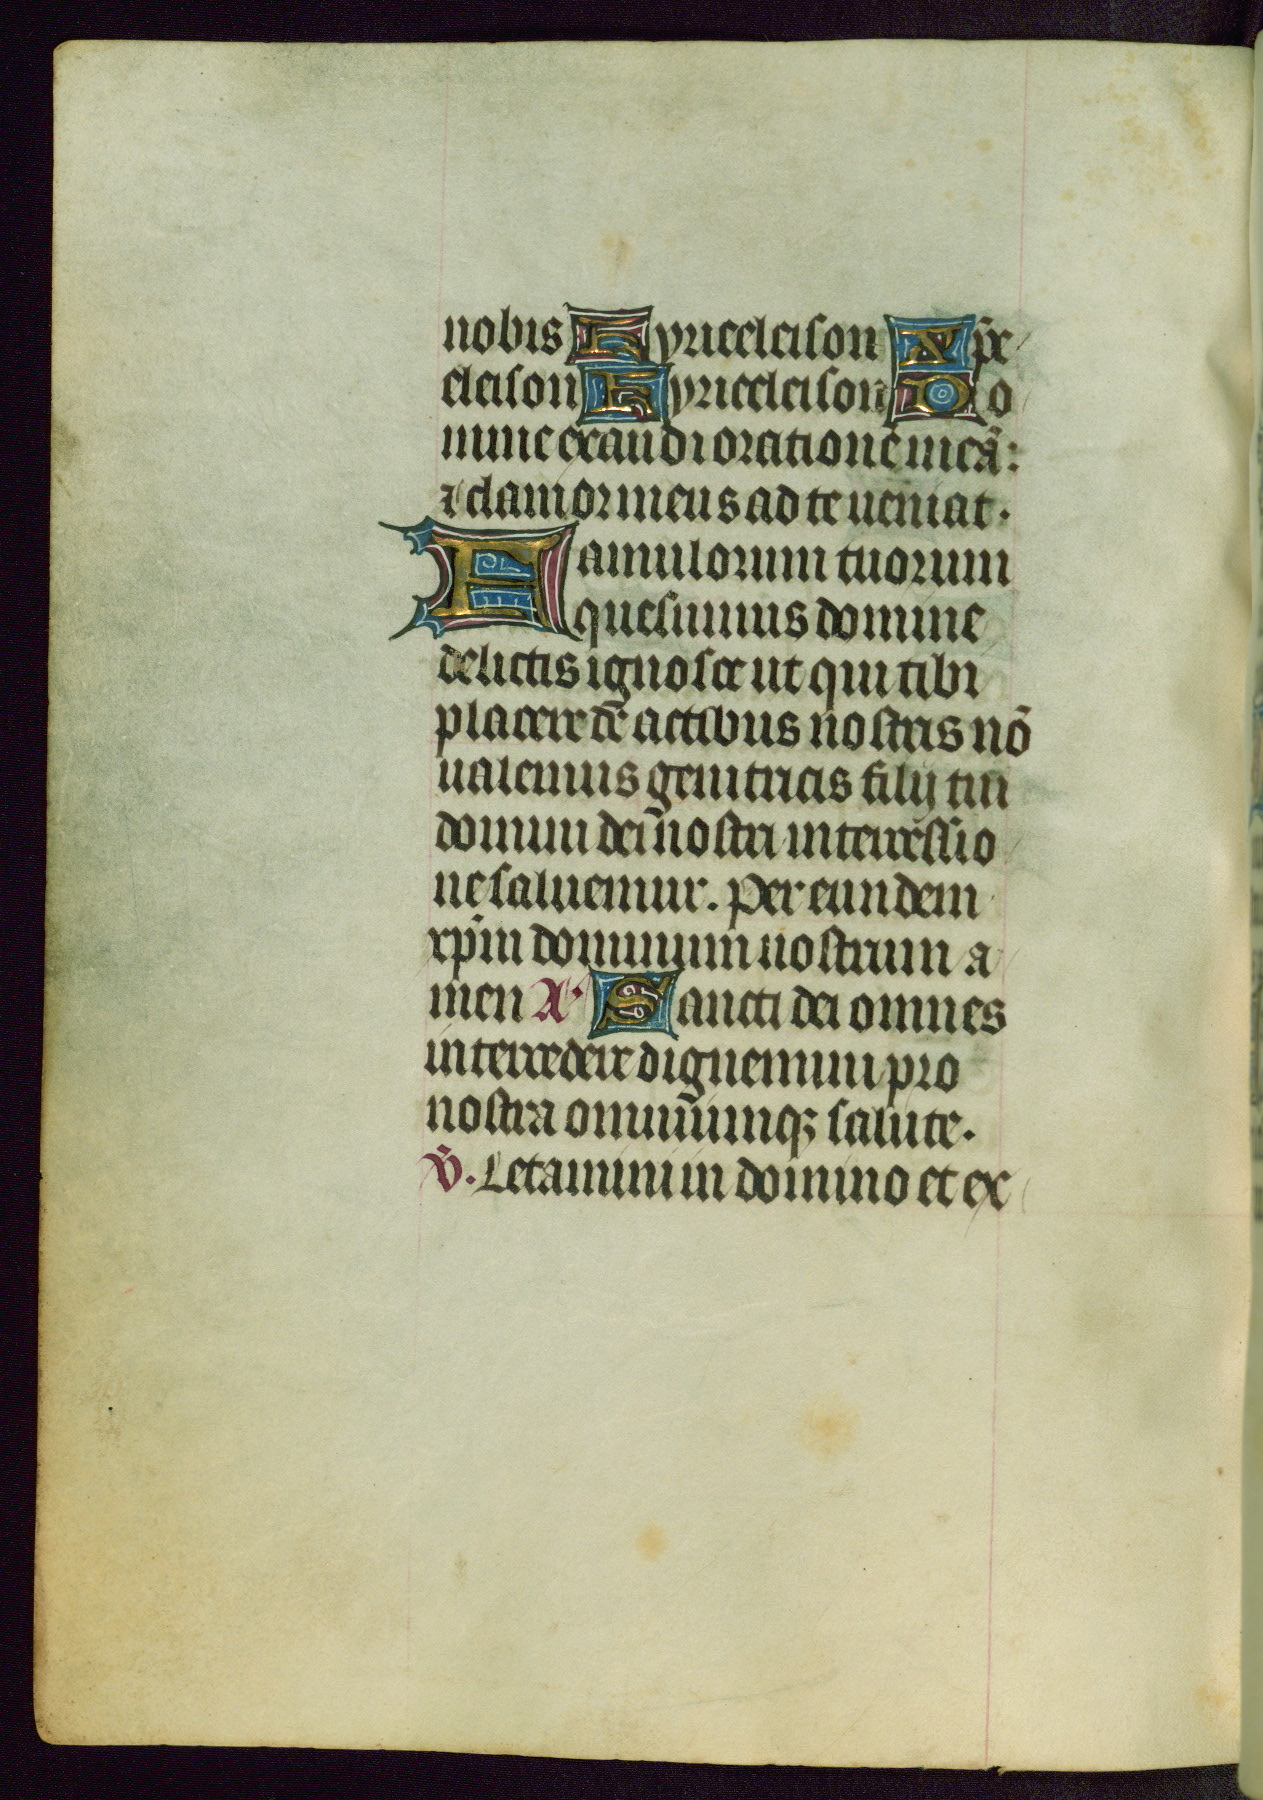 nobis Kyrieeleison Xp̄e
eleison Kyrieeleison Do
mine exaudi orationē meā:
⁊ clamor meus ad te ueniat.
Famulorum tuorum
quesumus domine
delictis ignosce ut qui tibi
placere de actibus nostris nō
ualemus genitricis filij tui
domini dei nostri intercessio
ne saluemur. Per eundem
xp̄m dominum nostrum a
men A. Sancti dei omnes
intercedere dignemini pro
nostra omniūmqꝫ salute.
V̄. Letamini in domino et ex